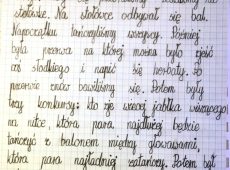 stołówkę. Na stołówce odbywał się bal.
Napoczątku tańczyliśmy wszyscy. Później
była przerwa na której można było zjeść
coś słodkiego i napić się herbaty. Po
przerwie znów bawiliśmy się. Potem były
trzy konkursy: kto zje więcej jabłka wiszącego
na nitce, która para najdłużej będzie
tańczyć z balonem między głowami,
która para najładniej zatańczy. Potem był